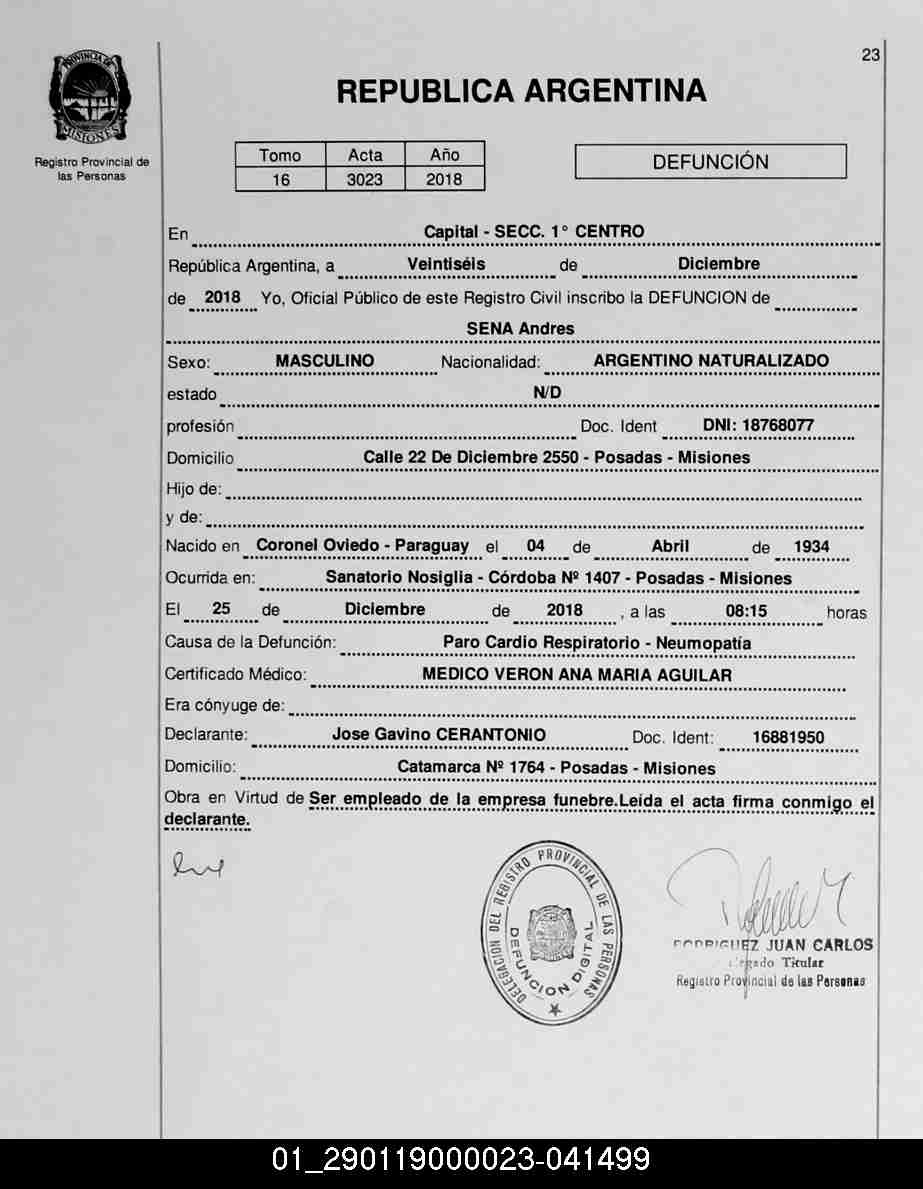 23
PROVINCIA DE
MISIONES
Registro Provincial de
las Personas
REPUBLICA ARGENTINA
Tomo Acta Año
16 3023 2018
DEFUNCIÓN
En Capital - SECC. 1° CENTRO
República Argentina, a Veintiséis de Diciembre
de 2018 Yo, Oficial Público de este Registro Civil inscribo la DEFUNCION de
SENA Andres
Sexo: MASCULINO Nacionalidad: ARGENTINO NATURALIZADO
estado N/D
profesión Doc. Ident DNI: 18768077
Domicilio Calle 22 De Diciembre 2550 - Posadas - Misiones
Hijo de:
y de:
Nacido en Coronel Oviedo - Paraguay el 04 de Abril de 1934
Ocurrida en: Sanatorio Nosiglia - Córdoba Nº 1407 - Posadas - Misiones
El 25 de Diciembre de 2018 , a las 08:15 horas
Causa de la Defunción: Paro Cardio Respiratorio - Neumopatía
Certificado Médico: MEDICO VERON ANA MARIA AGUILAR
Era cónyuge de:
Declarante: Jose Gavino CERANTONIO Doc. Ident: 16881950
Domicilio: Catamarca Nº 1764 - Posadas - Misiones
Obra en Virtud de Ser empleado de la empresa funebre.Leída el acta firma conmigo el
declarante.
DELEGACION DEL REGISTRO PROVINCIAL DE LAS PERSONAS
DEFUNCION DIGITAL
RODRIGUEZ JUAN CARLOS
Titular
Registro Provincial de las Personas
01_290119000023-041499